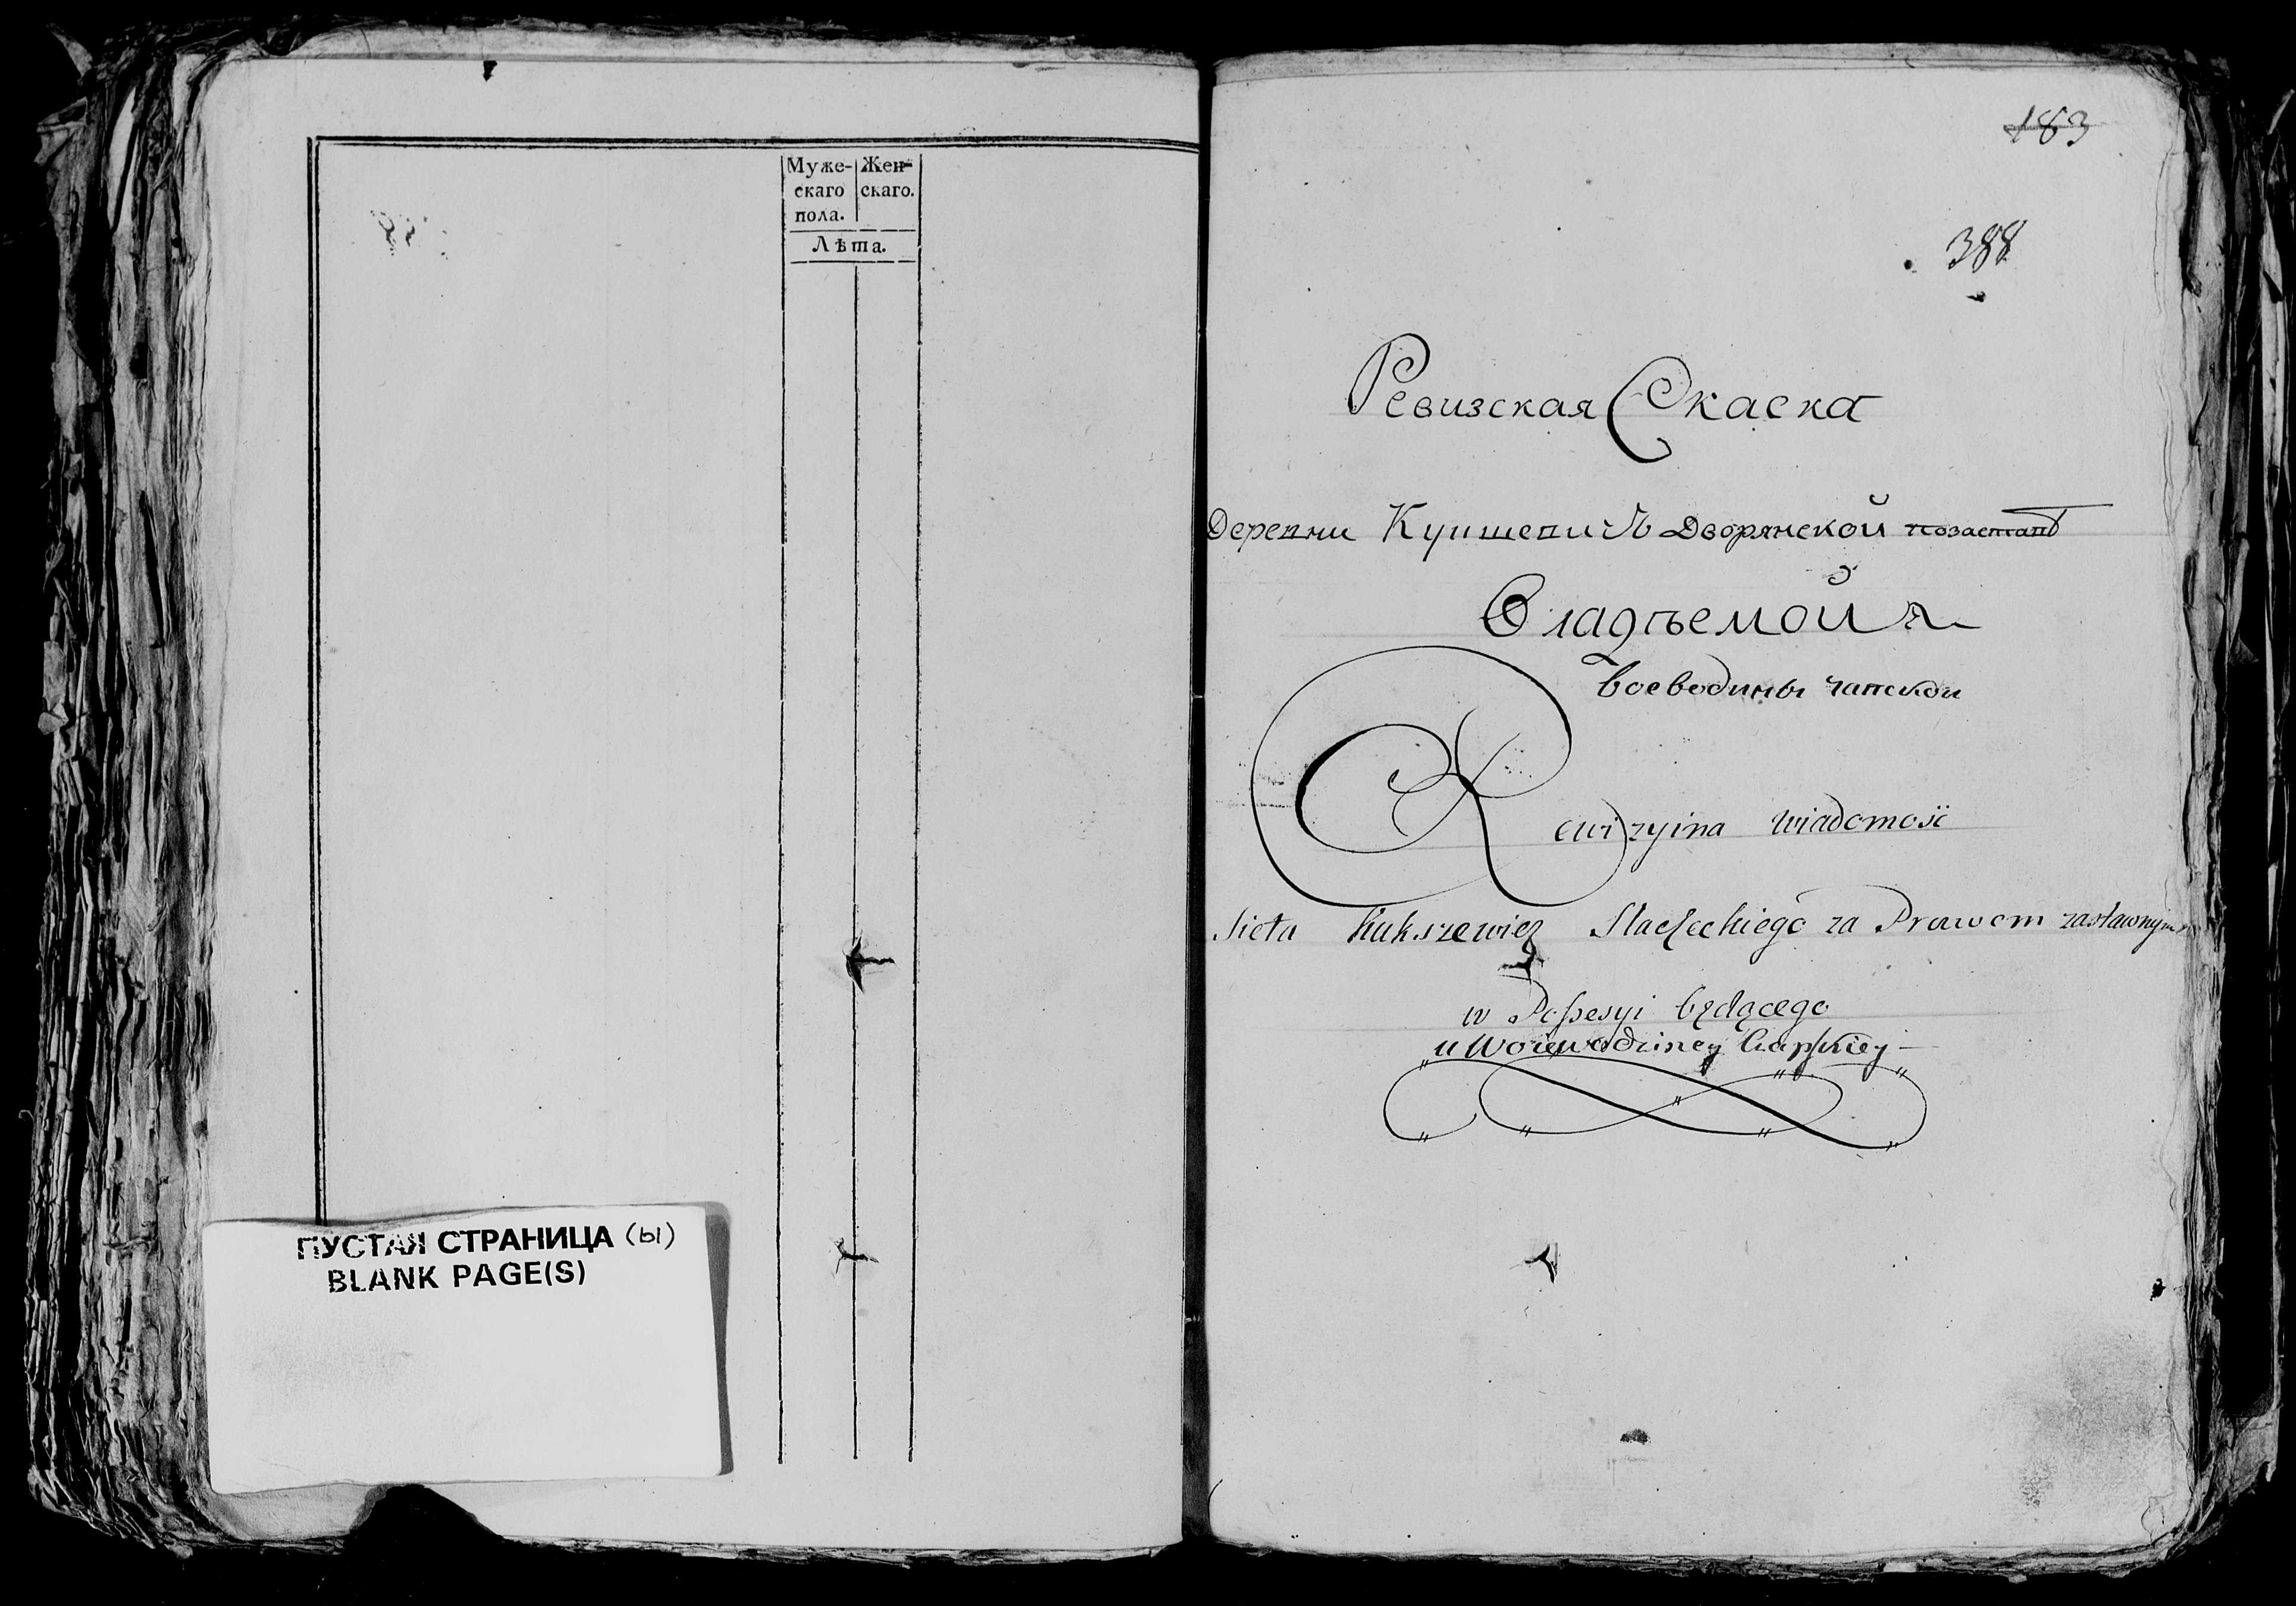 Муже-
скаго
пола.
Жен-
скаго.
Лѣта.
ПУСТАЯ СТРАНИЦА (ы)
BLANK PAGE(S)
183
388
Ревизская Скаска
Деревни Дворянской
Владѣемой
воеводины чапской
Rewizyina wiadomość
Sioła Kukszewicz Slacheckiego za Prawem zastawnym
w Possesyi będącego
u Woiewodziney Czapskiey